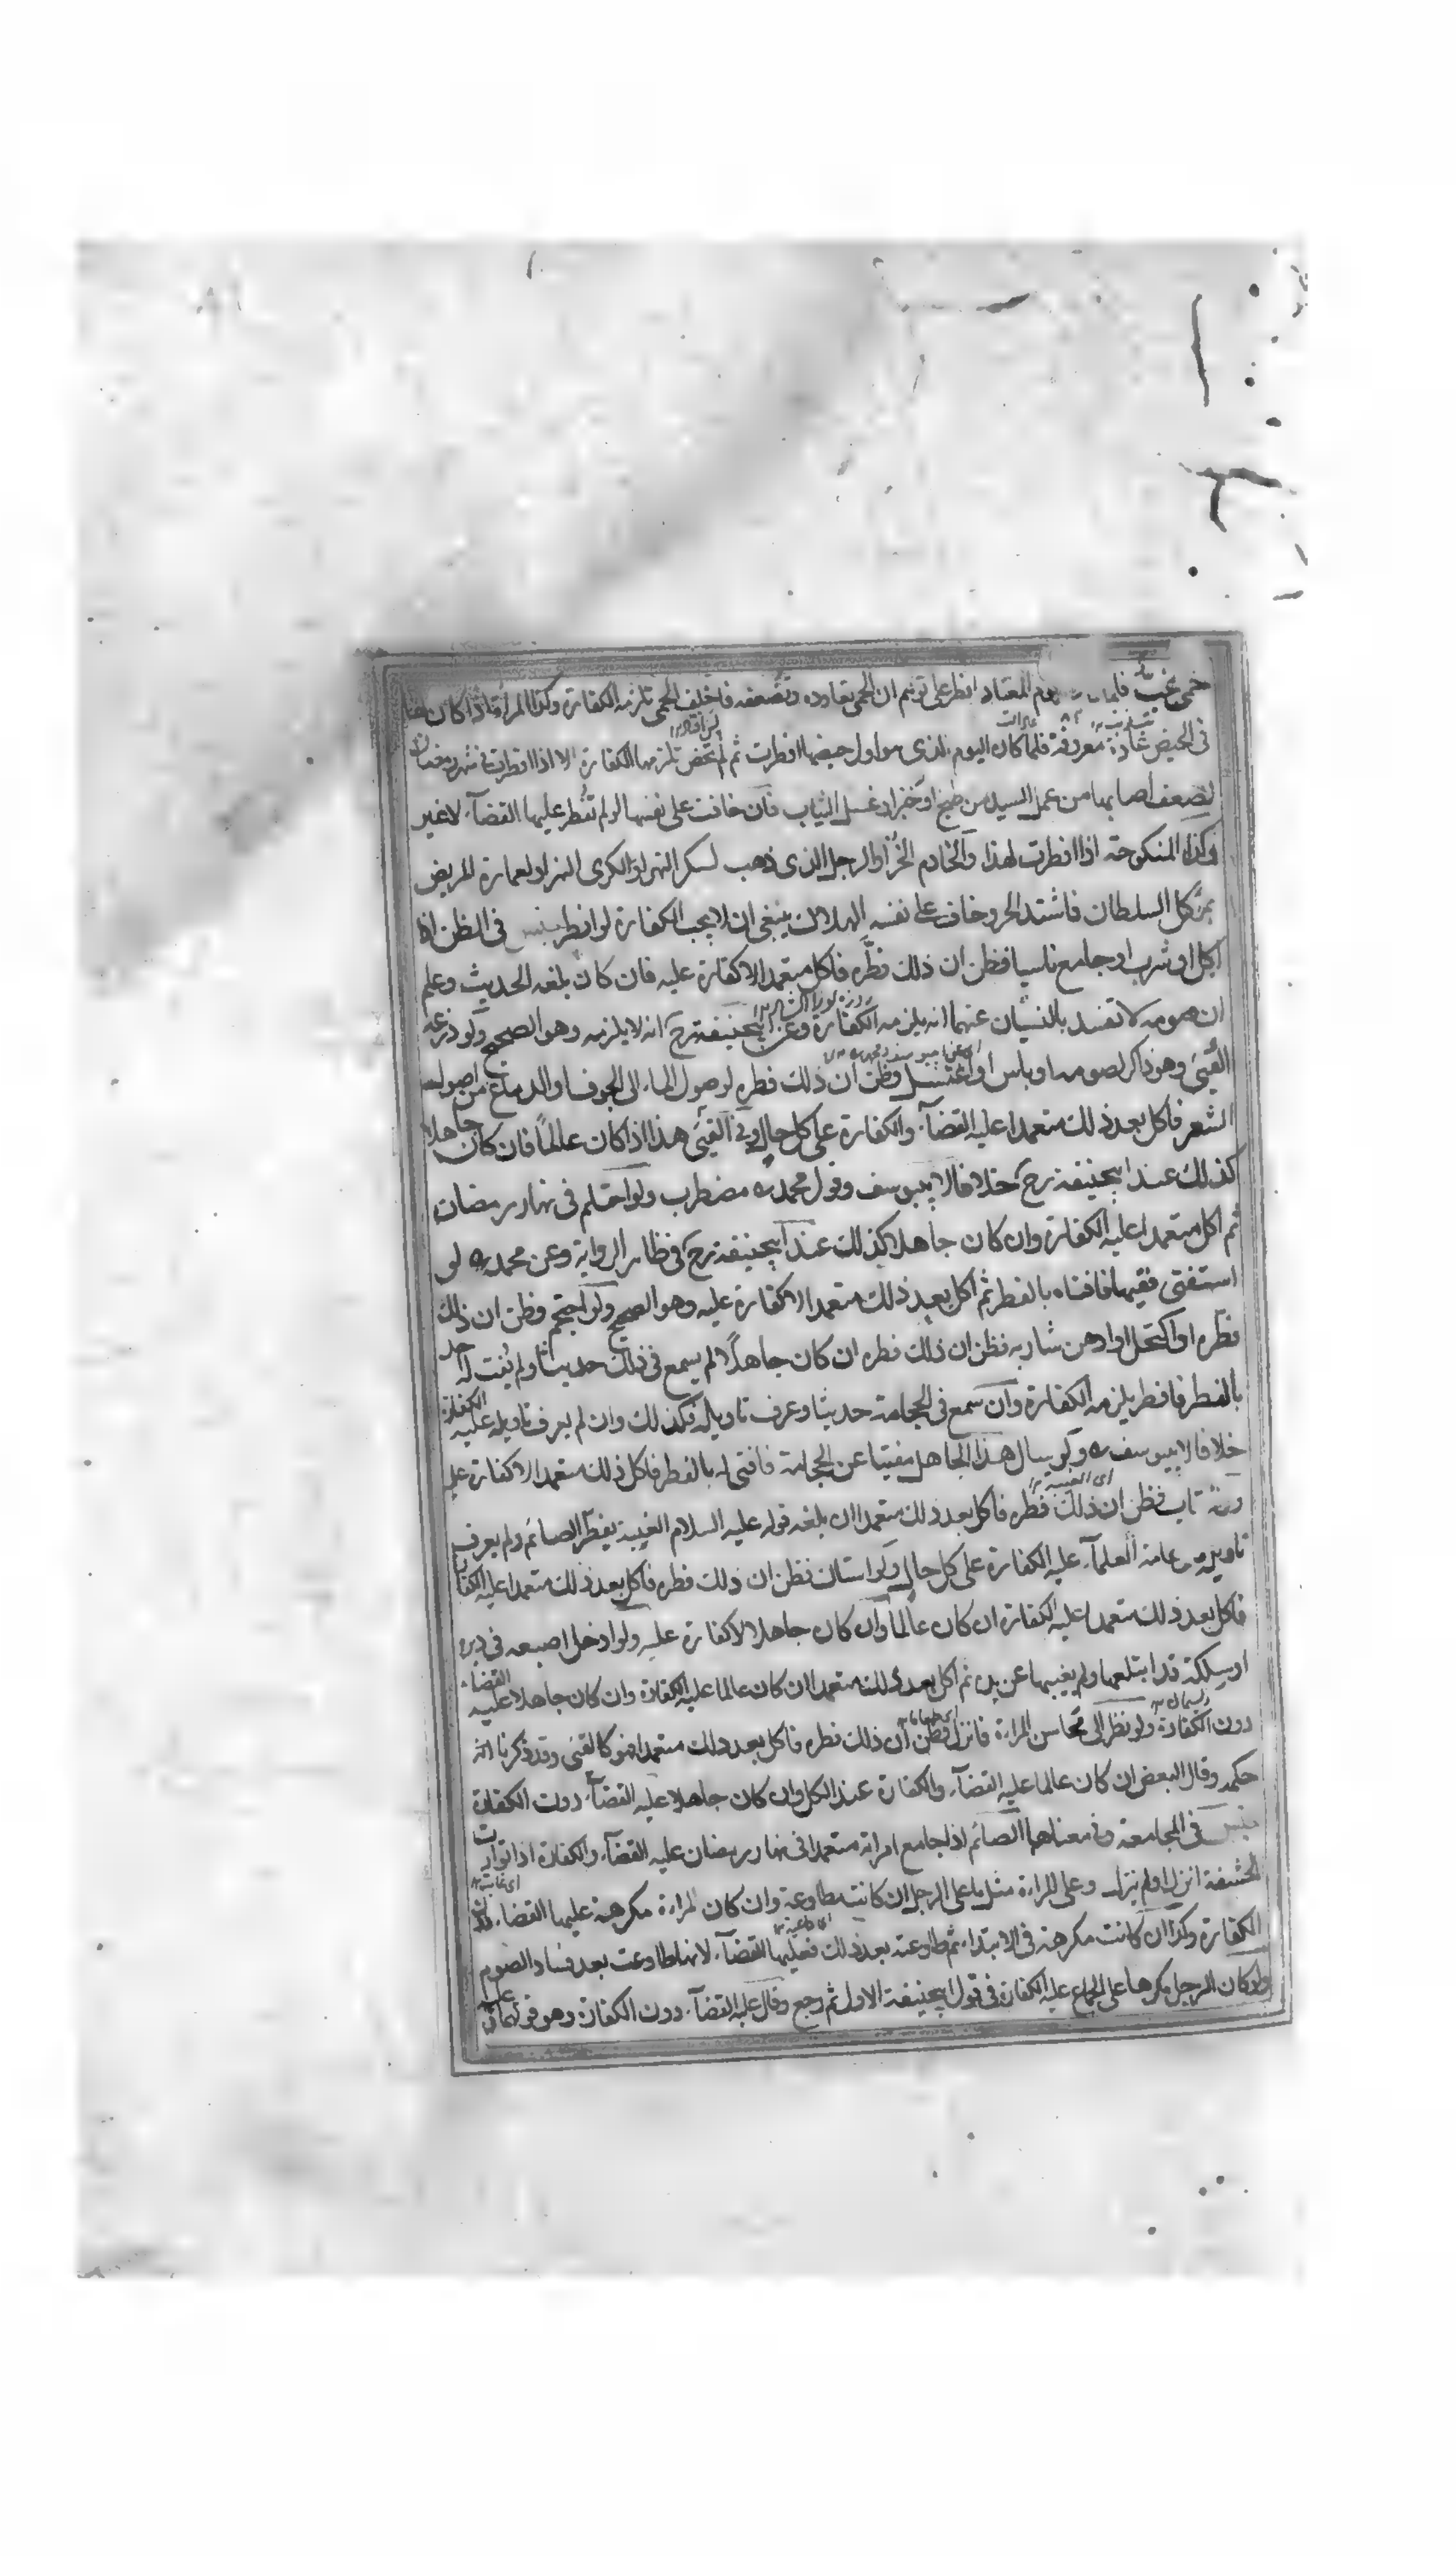 حمى غب فلما يوم المعتاد افطر على توهم ان الحمى تعاوده وتضعفه فاخلف الحمى تلزمه الكفارة وكذا المراة اذا كان لها
فى الحيض عادة معروفة فلما كان اليوم الذى هو اول حيضها افطرت ثم لم تحض تلزمها الكفارة الا اذا افطرت فى شهر رمضان
لضعف اصابها من عمل السيد من طبخ او خبز او غسل الثياب فان خافت على نفسها لو لم تفطر عليها القضآء لا غير
وكذا المنكوحة اذا افطرت لهذا والخادم الحر او الرجل الذى ذهب لسكر النهر او لكرى النهر او لعمارة المريض
كل السلطان فاشتد الحر وخاف على نفسه الهلاك ينبغى ان لا يجب الكفارة لو افطر جنس فى الظن اذا
اكل او شرب او جامع ناسيا فظن ان ذلك فطره فاكل متعمدا لا كفارة عليه فان كان بلغه الحديث وعلم
ان صومه لا تفسد بالنسيان عنهما انه يلزمه الكفارة وعن ابيحنيفة رح انه لا يلزمه وهو الصحيح ولو ذرعه
القيئ وهو ذاكر لصومه او باس او اغتسل وظن ان ذلك فطره لوصول الماء الى الجوف او الدماغ من اصول
الشعر فاكل بعد ذلك متعمدا عليه القضآء والكفارة على كل حال وفى القيئ هذا اذا كان عالما فان كان جاهلا
كذلك عند ابيحنيفة رح خلافا لابييوسف وقول محمد رح مضطرب ولو احتلم فى نهار رمضان
ثم اكل متعمدا عليه الكفارة وان كان جاهلا كذلك عند ابيحنيفة رح فى ظاهر الرواية وعن محمد رح لو
استفتى فقيها فافتاه بالفطر ثم اكل بعد ذلك متعمدا لا كفارة عليه وهو الصحيح ولو احتجم وظن ان ذلك
فطره او اكتحل او ادهن شاربه فظن ان ذلك فطره ان كان جاهلا لم يسمع فى ذلك حديثا ولم يفت له احد
بالفطر فافطر يلزمه الكفارة وان سمع فى الحجامة حديثا وعرف تاويله فكذلك وان لم يعرف تاويله عليه الكفارة
خلافا لابييوسف رح ولو سال هذا الجاهل مفتيا عن الحجامة فافتى له بالفطر فاكل ذلك متعمدا لا كفارة عليه
تاب فظن ان ذلك فطره فاكل بعد ذلك متعمدا ان بلغه قوله عليه السلام الغيبة يفطر الصائم ولم يعرف
تاويله عامة العلمآء عليه الكفارة على كل حال ولو استان فظن ان ذلك فطره فاكل بعد ذلك متعمدا عليه الكفارة
فاكل بعد ذلك متعمدا عليه الكفارة ان كان عالما وان كان جاهلا لا كفارة عليه ولو ادخل اصبعه فى دبره
او سلكة قد ابتلعها ولم يغيبها عن يده ثم اكل بعد ذلك متعمدا ان كان عالما عليه الكفارة وان كان جاهلا عليه القضاء
دون الكفارة ولو نظر الى محاسن المراة فانزل فظن ان ذلك فطره فاكل بعد ذلك متعمدا فهو كالقيئ وقد ذكرنا انه
حكمه وقال البعض ان كان عالما عليه القضآء والكفارة عند الكل وان كان جاهلا عليه القضآء دون الكفارة
جنس فى المجامعة وفى معناها الصائم اذا جامع امراته متعمدا فى نهار رمضان عليه القضآء والكفارة اذا توارت
الحشفة انزل او لم ينزل وعلى المراة مثل ما على الرجل ان كانت مطاوعة وان كان المراة مكرهة عليها القضاء دون
الكفارة وكذا ان كانت مكرهة فى الابتداء ثم طاوعته بعد ذلك فعليها القضآء لانها طاوعت بعد فساد الصوم
ولو كان الرجل مكرها على الجماع عليه الكفارة فى قول ابيحنيفة الاول ثم رجع وقال عليه القضآء دون الكفارة وهو قولهما